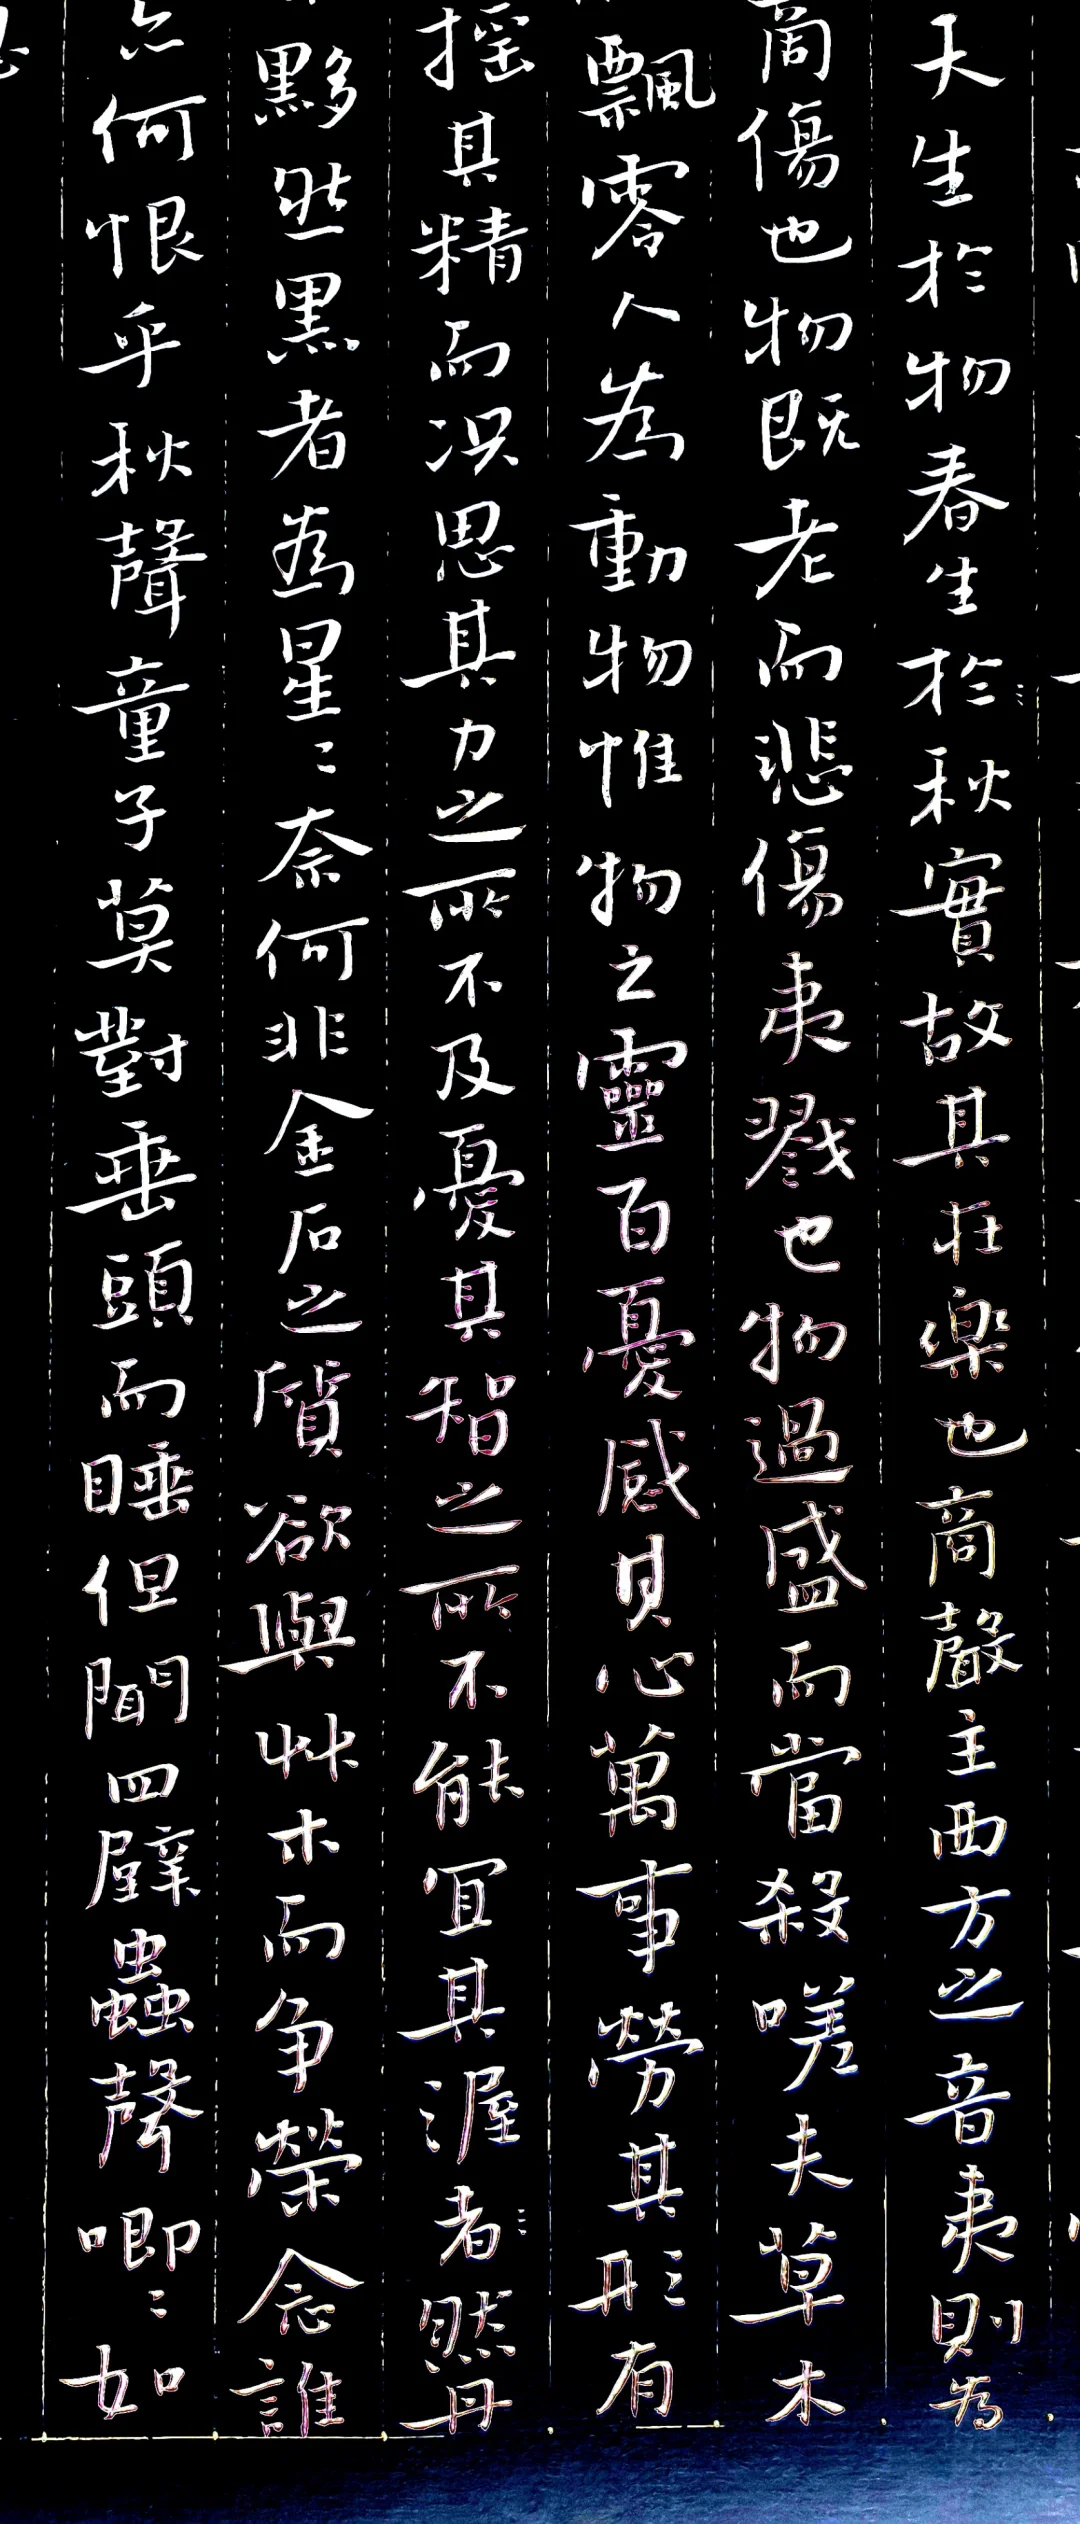 天生於物春生於秋實故其在樂也商聲主西方之音夷則為
商傷也物既老而悲傷夷戮也物過盛而當殺嗟夫草木
飄零人為動物惟物之靈百憂感其心萬事勞其形有
搖其精而況思其力之所不及憂其智之所不能宜其渥者然丹
黟然黑者為星〻奈何非金石之質欲與艸木而爭榮念誰
亦何恨乎秋聲童子莫對垂頭而睡但聞四壁蟲聲唧〻如